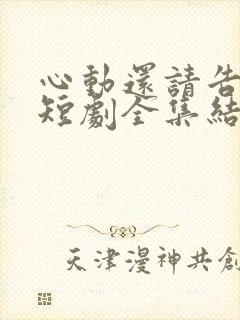 心動還請告
短劇全集結
天津漫神共創